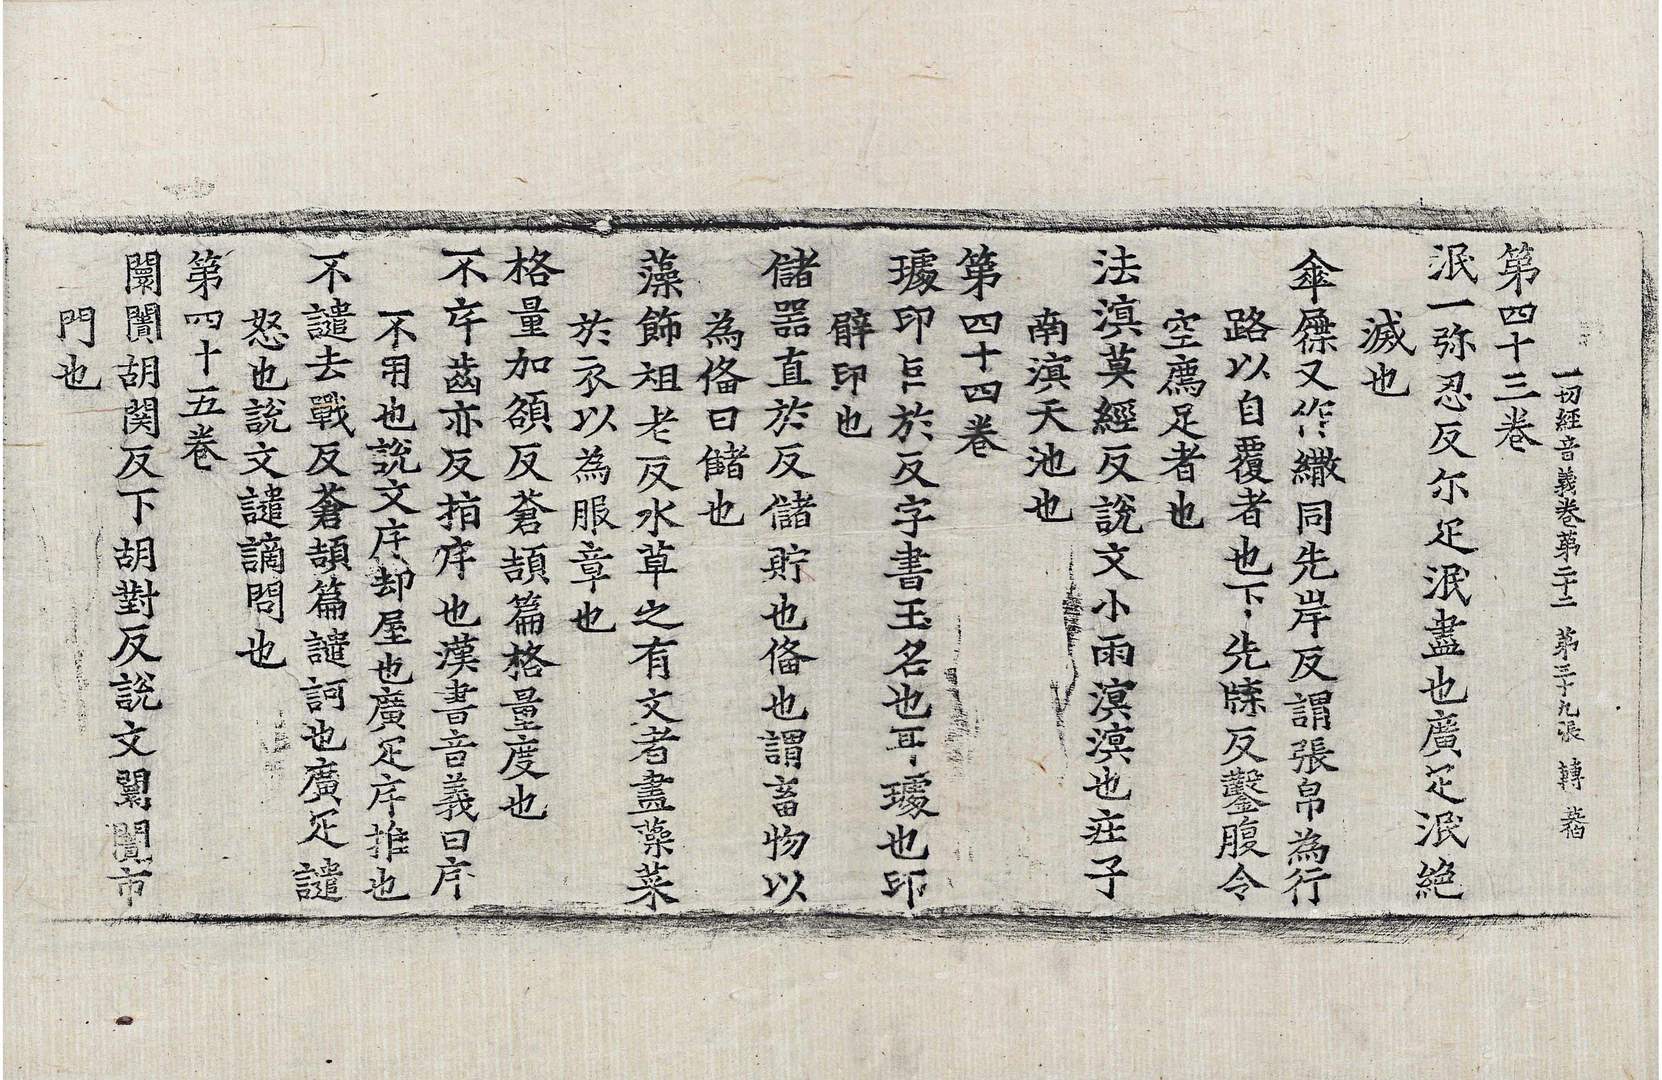 一切經音義卷第二十二 第三十九張 轉
第四十三卷
泯一弥忍反尔疋泯盡也廣疋泯絶
滅也
傘屧又作繖同先岸反謂張帛為行
路以自覆者也下先牒反鑿腹令
空薦足者也
法溟莫經反說文小雨溟溟也莊子
南溟天池也
第四十四卷
璩印巨於反字書玉名也耳璩也印
臂印也
儲器直於反儲貯也俻也謂畜物以
為俻曰儲也
藻飾祖老反水草之有文者畫藻菜
於衣以為服章也
格量加頟反蒼頡篇格量度也
不斥齒亦反指斥也漢書音義曰斥
不用也說文斥却屋也廣疋斥推也
不譴去戰反蒼頡篇譴訶也廣疋譴
怒也說文譴謫問也
第四十五卷
闤闠胡関反下胡對反說文闤闠市
門也